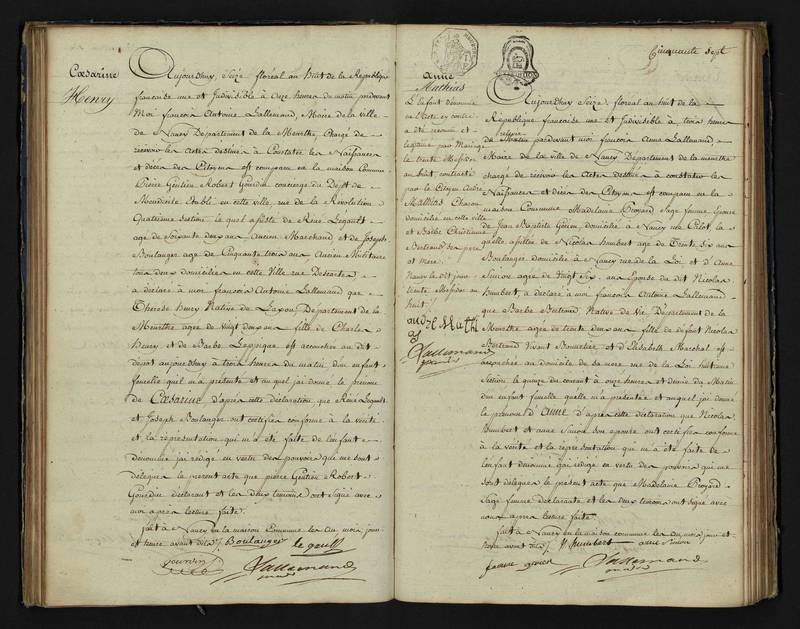 Cœsarine
Henry
Aujourdhuy Seize floréal an huit de la République
françoise une et Indivisible à Onze heures du matin pardevant
Moi françois Antoine Lallemand, Maire de la ville
de Nancy Département de la Meurthe, Chargé de
recevoir les Actes destinés à Constater les Naissances
et décès des Citoyens est comparu en la maison Commune
Pierre Gentien Robert Gourdin concierge du Dépt de
Mendicité établi en cette ville, rue de la Révolution
Quatrieme section le quel assisté de René Legault
agé de Soixante deux ans Ancien Marchand et de Joseph
Boulanger agé de Cinquante trois ans Ancien Militaire
tous deux domiciliés en cette Ville rue Descartes
a déclaré à moi françois Antoine Lallemand que
Therese henry Native de Laxou Département de la
Meurthe agée de vingt deux ans fille de Charles
henry, et de Barbe est accouchée au dit
dépot aujourdhuy à trois heures du matin d'un enfant
femelle quil m'a présenté et auquel jai donné le prénom
de Cœsarine d'après cette déclaration, que René Legault
et Joseph Boulanger ont certifiée conforme à la vérité
et la représentation qui m'a été faite de l'enfant
dénommé jai rédigé en vertu des pouvoirs qui me sont
délégués le present acte que pierre Gentien Robert
Gourdin déclarant et les deux témoins ont signé avec
moi après lecture faite.
fait à Nancy en la maison Commune les an mois jour
et heure avant dits. Boulanger le gault
gourdin Lallemand
maire
Cinquante sept
anne
Mathias
L'Enfant dénommé
en l'acte cy contre
a été reconnu et
légitimé par Mariage
le trente Messidor
an huit contracté
par le Citoyen André
Mathias Charon
domicilié en cette ville
et Barbe Christianne
Bertrand ses pere
et mere.
Nancy le dit jour
trente Messidor an
huit.
andre Mathi
Lallemand
maire
Aujourdhuy Seize floréal an huit de la
République françoise une et Indivisible à trois heures
de relevée pardevant moi françois Anne Lallemand
Maire de la ville de Nancy Département de la meurthe
chargé de recevoir les Actes destinés à constater les
Naissances et décès des Citoyens est comparu en la
maison Commune Madelaine Proyard Sage femme Epouse
de Jean Baptiste domicilié à Nancy rue
quelle assistée de Nicolas humbert agé de Trente Six ans
Boulanger domicilié à Nancy rue de la Loi et d'Anne
Simon agée de Vingt Six ans Epouse du dit Nicolas
humbert, a déclaré à moi françois Antoine Lallemand
que Barbe Bertrand Native de Vic Département de la
Meurthe agée de trente deux ans fille de défunt Nicolas
Bertrand Vivant et d'Elisabeth Marchal est
accouchée au domicile de sa mere rue de la Loi huitieme
Section le quinze du courant à onze heures et demie du Matin
d'un enfant femelle quelle m'a présenté et auquel jai donné
le prénom d'anne d'après cette déclaration que Nicolas
humbert et anne Simon son epouse ont certifiée conforme
à la vérité et la représentation qui m'a été faite de
l'enfant dénommé, jai rédigé en vertu des pouvoirs qui me
sont délégués le present acte que Madelaine Proyard
Sage femme déclarante et les deux témoins ont signé avec
nous après lecture faite.
fait à Nancy en la maison commune les an mois jour et
heure avant dits. N humbert anne Simon
Lallemand
maire